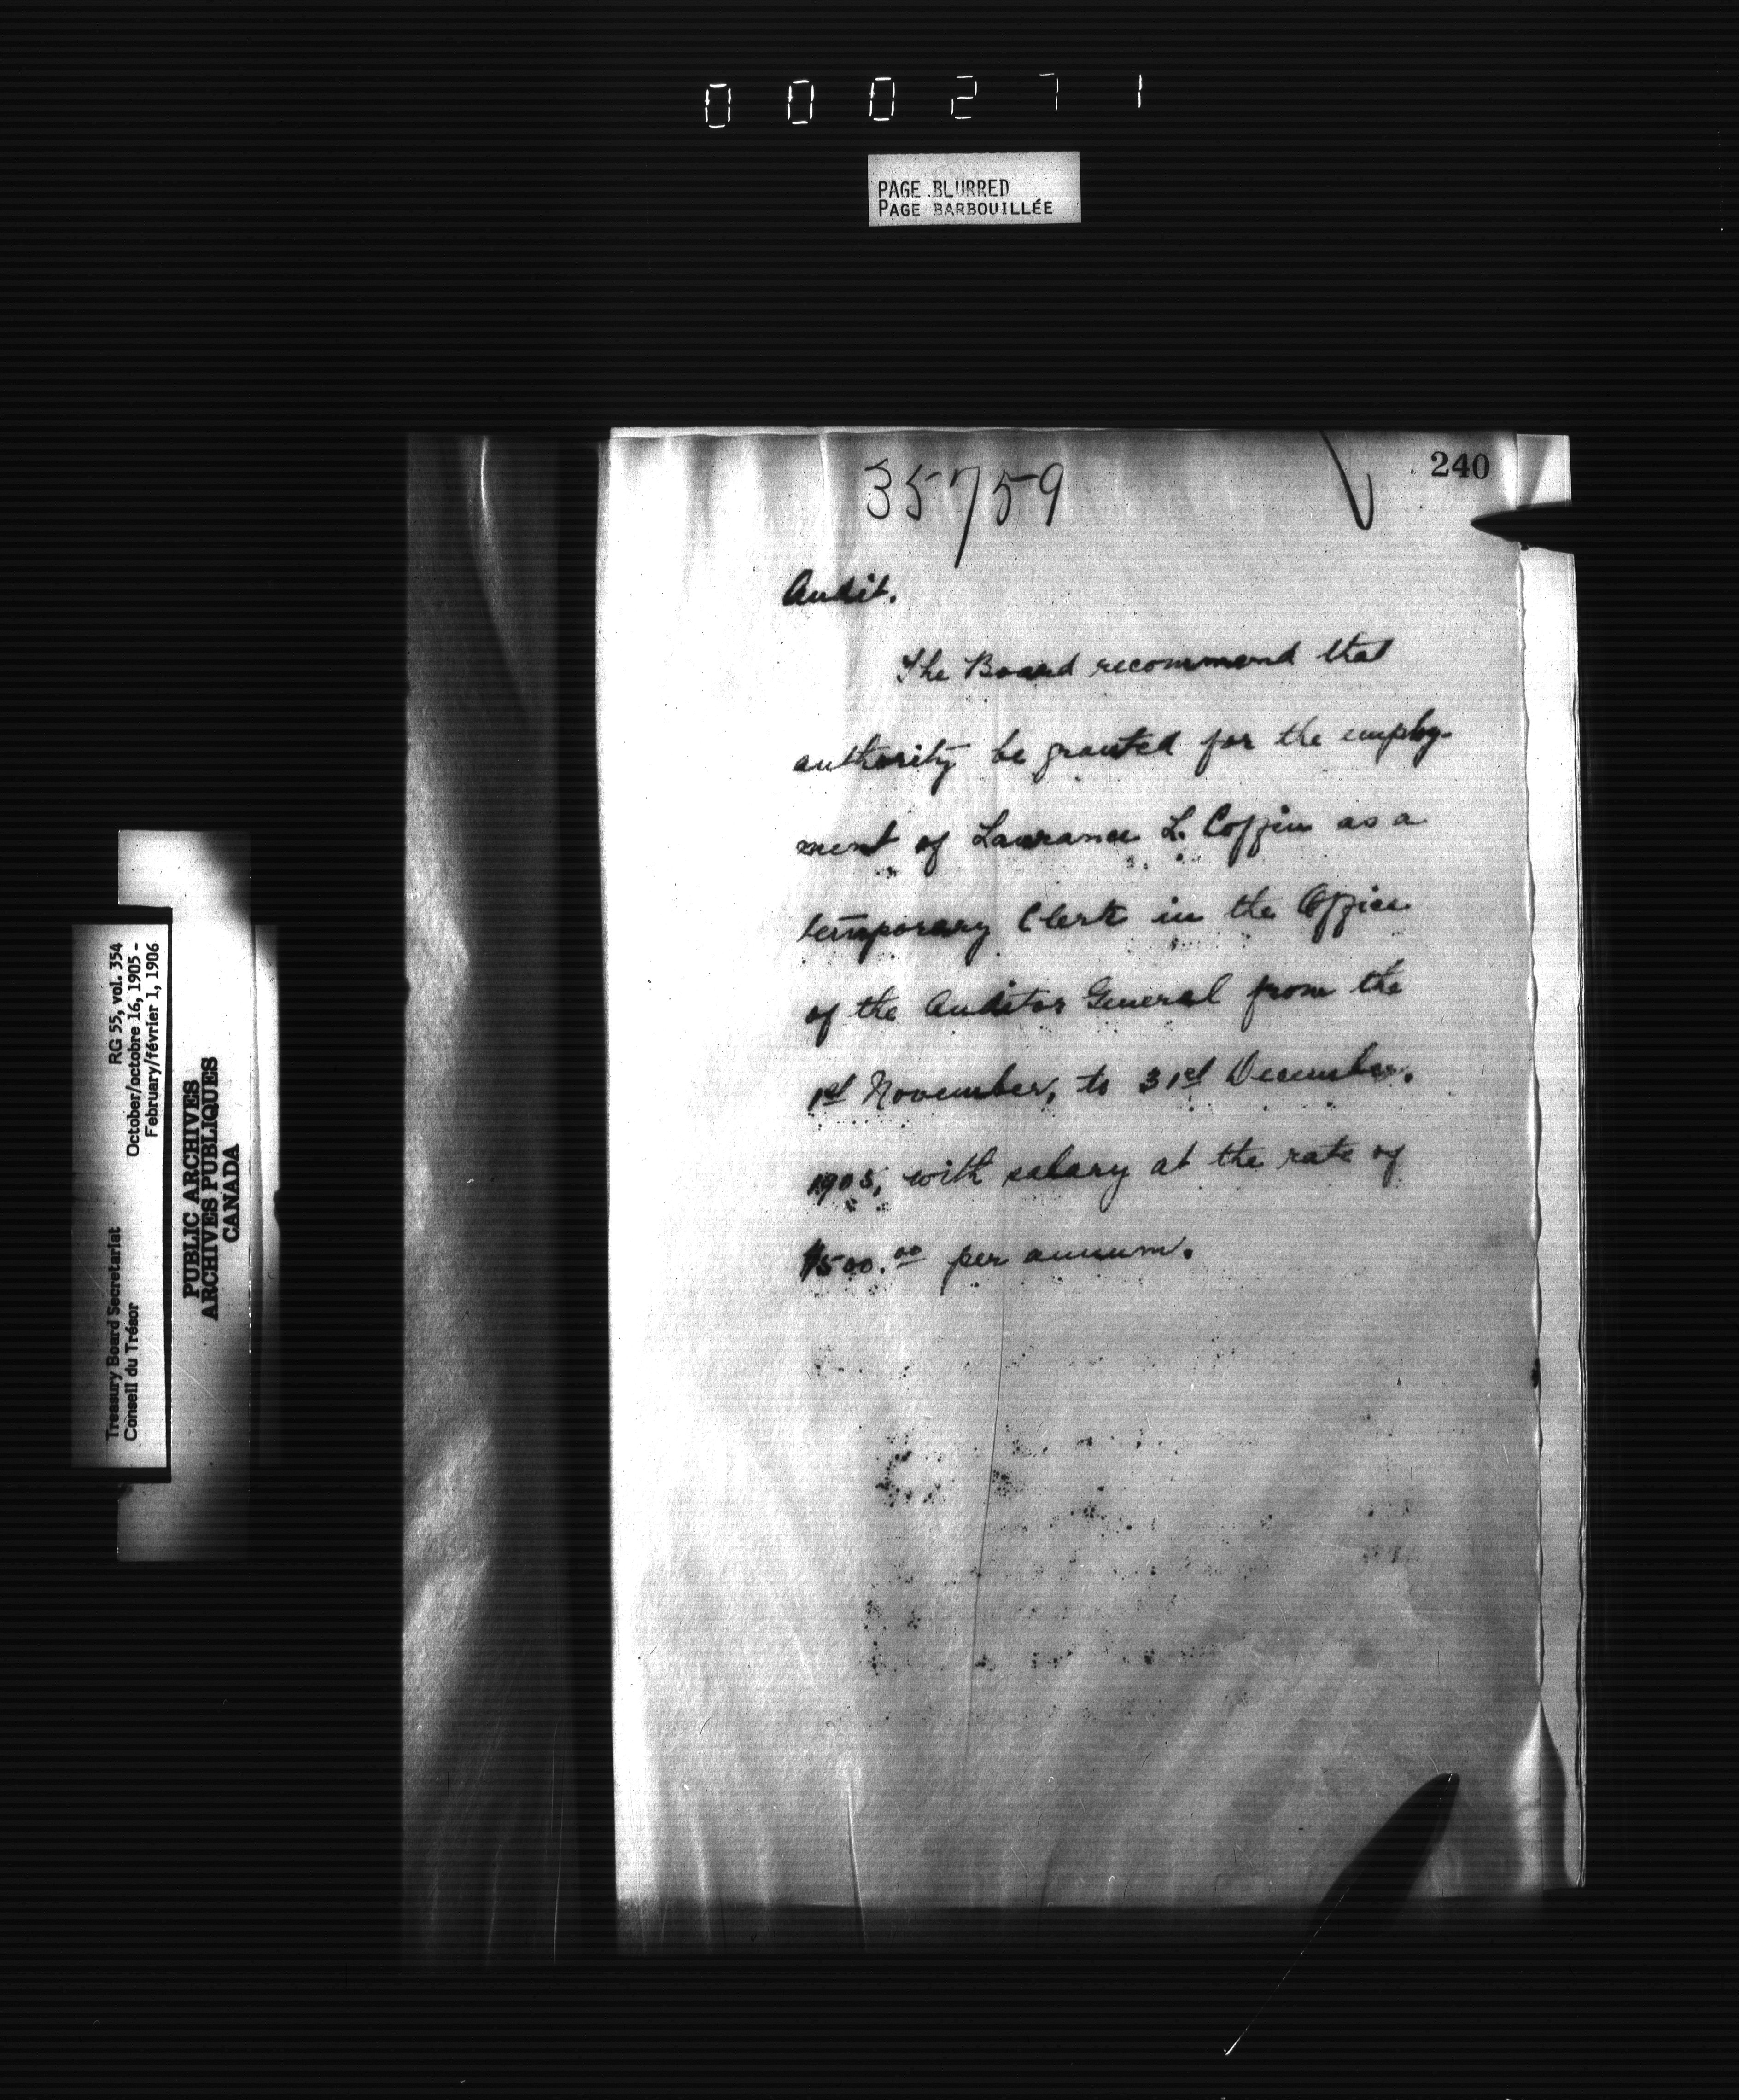 000271
PAGE BLURRED
PAGE BARBOUILLÉE
240
35759
Audit.
The Board recommend that
authority be granted for the employ-
ment of Laurance L. Coffin as a
temporary Clerk in the Office
of the Auditor General from the
1st November, to 31st December,
1905, with salary at the rate of
$500.00 per annum.
Treasury Board Secretariat RG 55, vol. 354
Conseil du Trésor October/octobre 16, 1905 -
February/février 1, 1906
PUBLIC ARCHIVES
ARCHIVES PUBLIQUES
CANADA